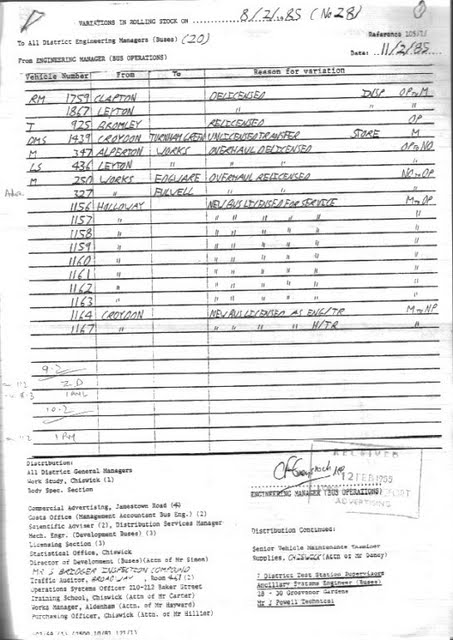 VARIATIONS IN ROLLING STOCK ON 8/2/1985 (No 28)
To All District Engineering Managers (Buses) (20)
Reference
Date: 11/2/85
From ENGINEERING MANAGER (BUS OPERATIONS)
Vehicle Number From To Reason for variation
RM 1759 CLAPTON DELICENSED INSP OP to M
1867 LEYTON " "
T 925 BROMLEY RELICENSED OP
DMS 1439 CROYDON TURNHAM GREEN UNLICENSED TRANSFER STORE M
M 347 ALPERTON WORKS OVERHAUL DELICENSED OP to NO
LS 436 LEYTON " " " "
M 250 WORKS EDGWARE OVERHAUL RELICENSED NO to OP
327 " FULWELL " " "
1156 HOLLOWAY NEW BUS LICENSED FOR SERVICE M to OP
1157 " " " " " " "
1158 " " " " " " "
1159 " " " " " " "
1160 " " " " " " "
1161 " " " " " " "
1162 " " " " " " "
1163 " " " " " " "
1164 CROYDON NEW BUS LICENSED AS ENG/TR M to NP
1167 " " " " " H/TR "
9.2
2 D
10.2
Distribution:
All District General Managers
Work Study, Chiswick (1)
Body Spec. Section
RECEIVED
12 FEB 1985
ADVERTISING
ENGINEERING MANAGER (BUS OPERATIONS)
Commercial Advertising, Jamestown Road
Costs Office (Management Accountant Bus Eng.) (2)
Scientific Adviser (2), Distribution Services Manager
Mech. Engr. (Development Buses) (3)
Licensing Section (3)
Statistical Office, Chiswick
Director of Development (Buses)(Attn of Mr Simon)
MR S BRIDGER INSPECTION COMPOUND
Traffic Auditor, BROADWAY, Room (2)
Operations Systems Officer 210-212 Baker Street
Training School, Chiswick (Attn of Mr Carter)
Works Manager, Aldenham (Attn of Mr Hayward)
Purchasing Officer, Chiswick (Attn of Mr Hillier)
Distribution Continued:
Senior Vehicle Maintenance Examiner
Supplies, CHISWICK (Attn of Mr Dancy)
7 District Test Station Supervisors
Ancillary Systems Engineer (Buses)
18 - 20 Grosvenor Gardens
Mr J Powell Technical